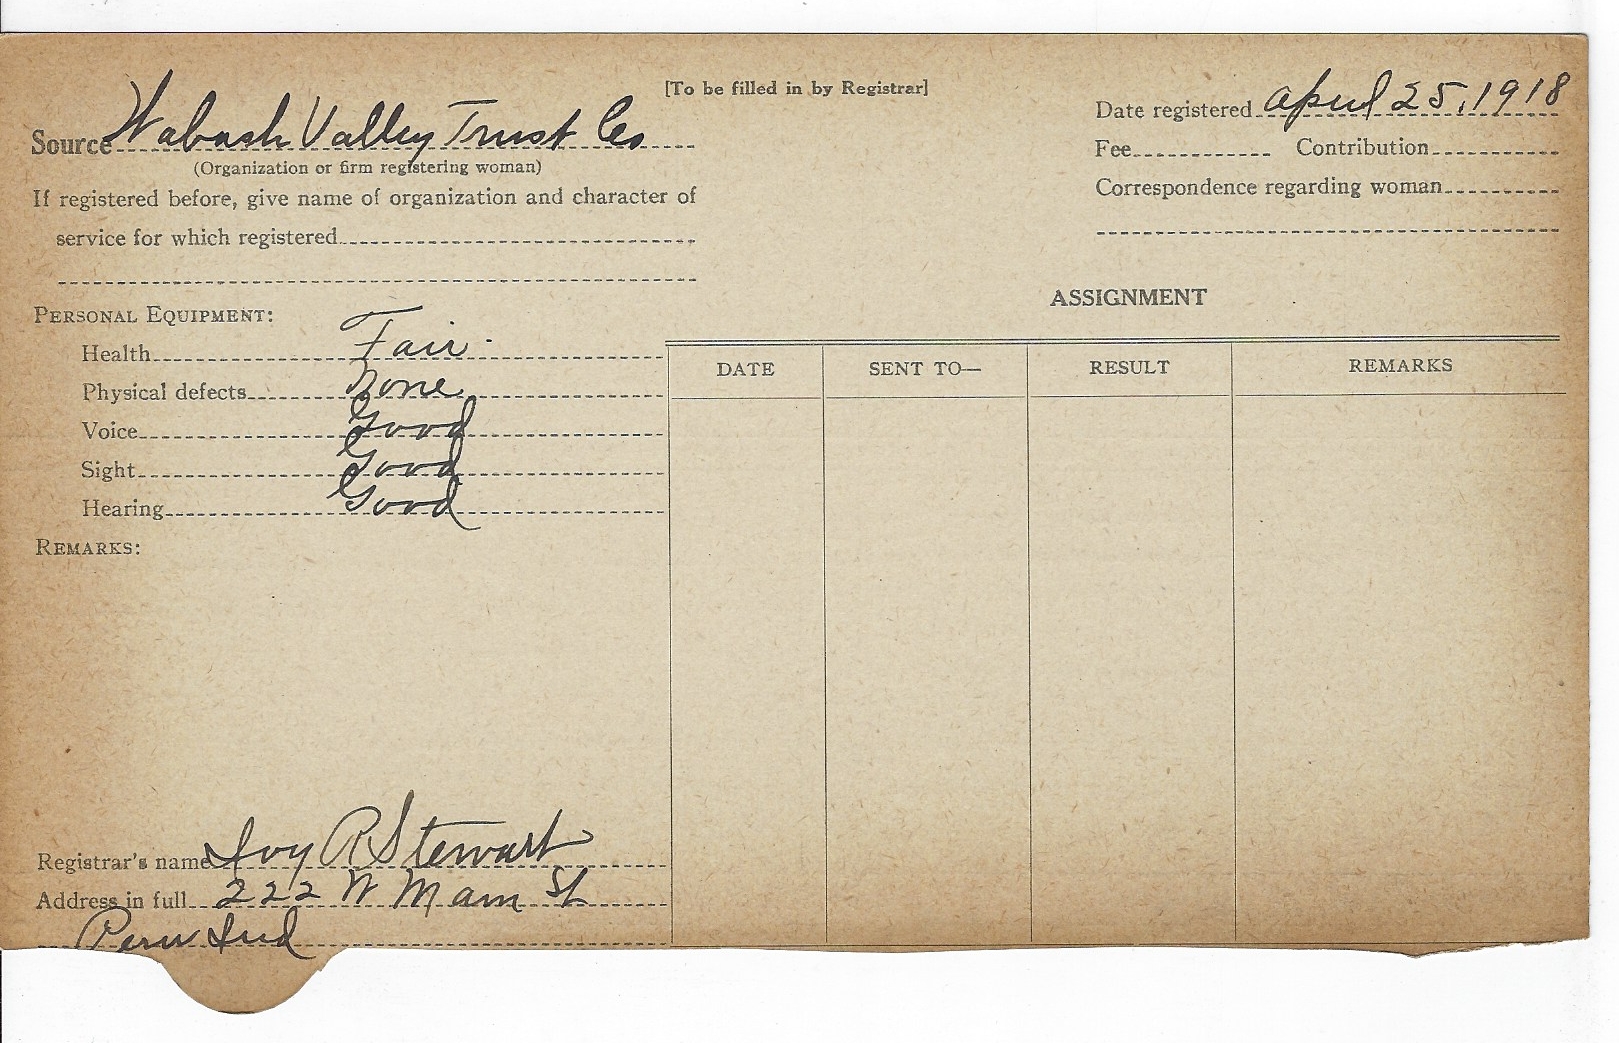 [To be filled in by Registrar]
Source Wabash Valley Trust Co
(Organization or firm registering woman)
If registered before, give name of organization and character of
service for which registered
Date registered April 25, 1918
Fee Contribution
Correspondence regarding woman
PERSONAL EQUIPMENT:
Health Fair
Physical defects None
Voice Good
Sight Good
Hearing Good
REMARKS:
ASSIGNMENT
DATE SENT TO— RESULT REMARKS
Registrar's name Ivy R Stewart
Address in full 222 W Main St
Peru Ind